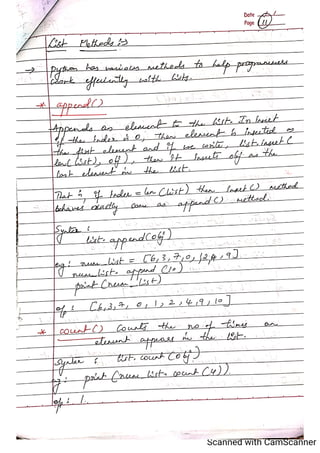 Date
Page 11
List Methods :→
→ Python has various methods to help programmers
work effeciently with Lists.
* append()
Appends an element to the list. In Insert
if the index is 0, then element is inserted as
the first element and if we write, list.insert(
len(list), obj), then it inserts obj as the
last element in the list.
That is if Index = len(list) then insert() method
behaves exactly same as append() method.
Syntax :
list.append(obj)
eg: num_list = [6,3,7,0,1,2,4,9]
num_list.append(10)
print(num_list)
o/p : [6,3,7, 0, 1, 2, 4, 9, 10]
* count() Counts the no of times an
element appears in the list.
Syntax : list.count(obj)
eg: print(num_list.count(4))
o/p: 1.
Scanned with CamScanner